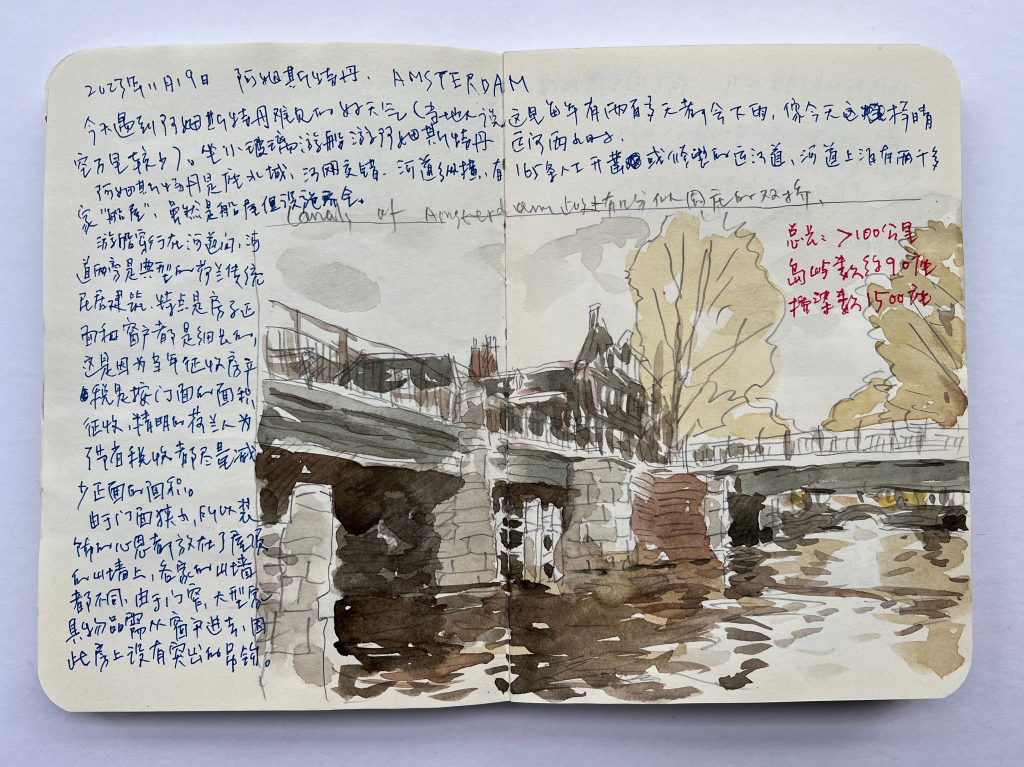 2023年11月19日 阿姆斯特丹. AMSTERDAM
今天遇到阿姆斯特丹难见的好天气(当地人说这是每年有两百多天都会下雨,像今天这样晴
空万里较少)。坐小玻璃游船游阿姆斯特丹运河两小时.
阿姆斯特丹是座水城,河网交错.河道纵横,有165条人工开凿或修整的运河道,河道上泊有两千多
家"船屋",虽然是船屋但设施齐全。
Canals of Amsterdam 有几分似周庄的双桥.
总长:>100公里
岛屿数约90座
桥梁数1500座
游船穿行在河道间,河
道两旁是典型的荷兰传统
民居建筑.特点是房子正
面和窗户都是细长的,
这是因为当年征收房产
税是按门面的面积
征收,精明的荷兰人为
了节省税收都尽量减
少正面的面积。
由于门面狭小,所以装
饰的心思都放在了屋顶
的山墙上,各家的山墙
都不同,由于门窄,大型家
具物品需从窗户进去,因
此房上设有突出的吊钩。